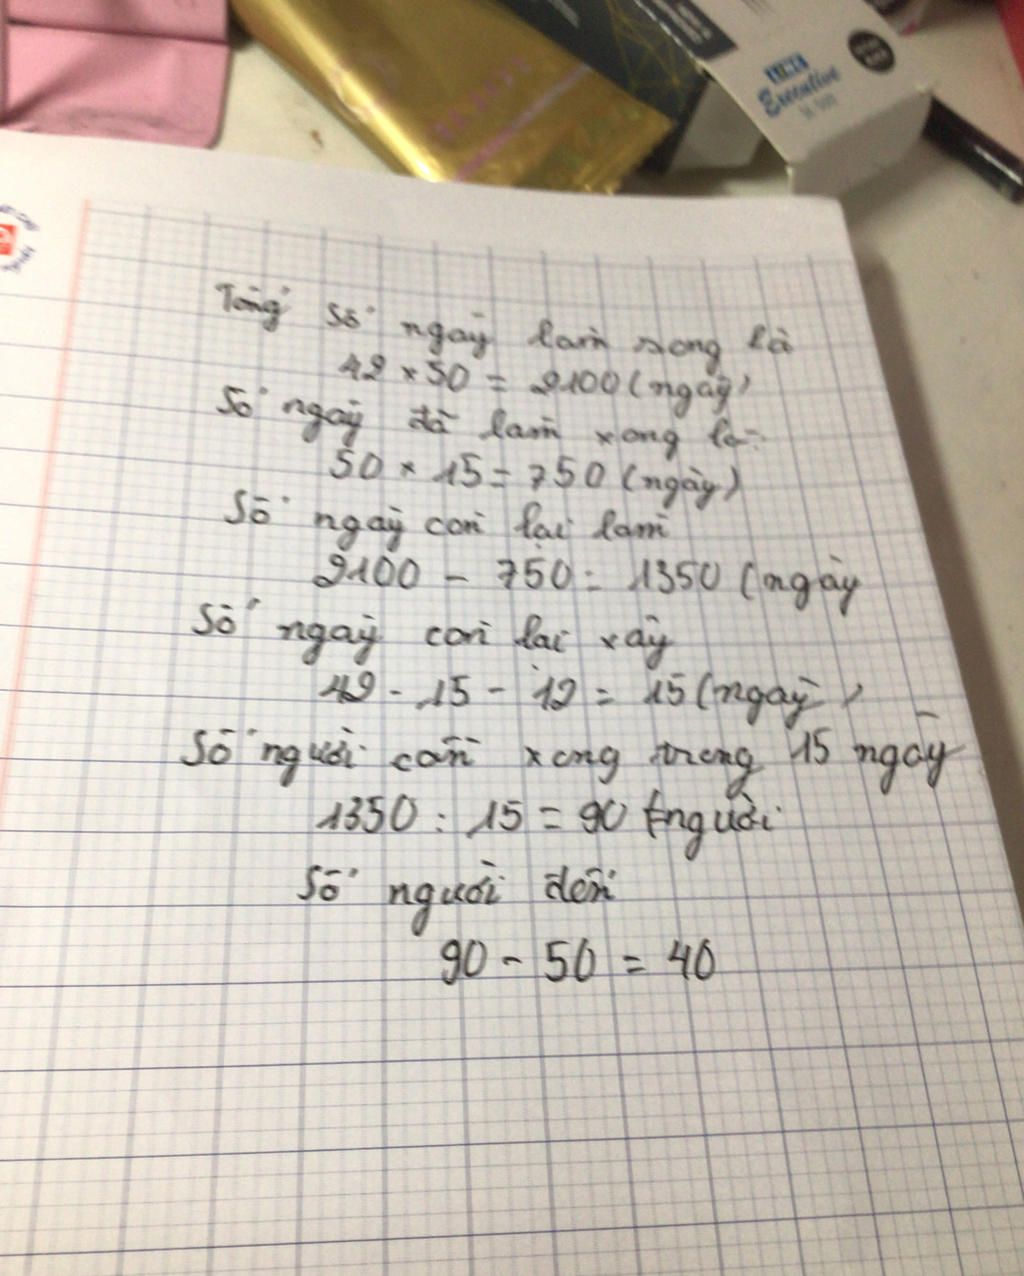 Executive
Tổng số ngày làm xong là
42 × 50 = 2100 (ngày)
Số ngày đã làm xong là:
50 × 15 = 750 (ngày)
Số ngày còn lại làm
2100 - 750 = 1350 (ngày
Số ngày còn lại xây
42 - 15 - 12 = 15 (ngày)
Số người cần xong trong 15 ngày
1350 : 15 = 90 (người
Số người đến
90 - 50 = 40